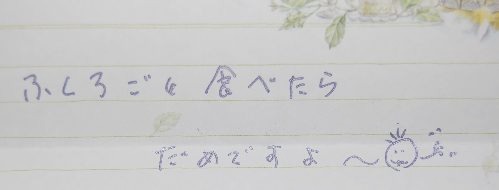 ふくろごと食べたら
だめですよ〜